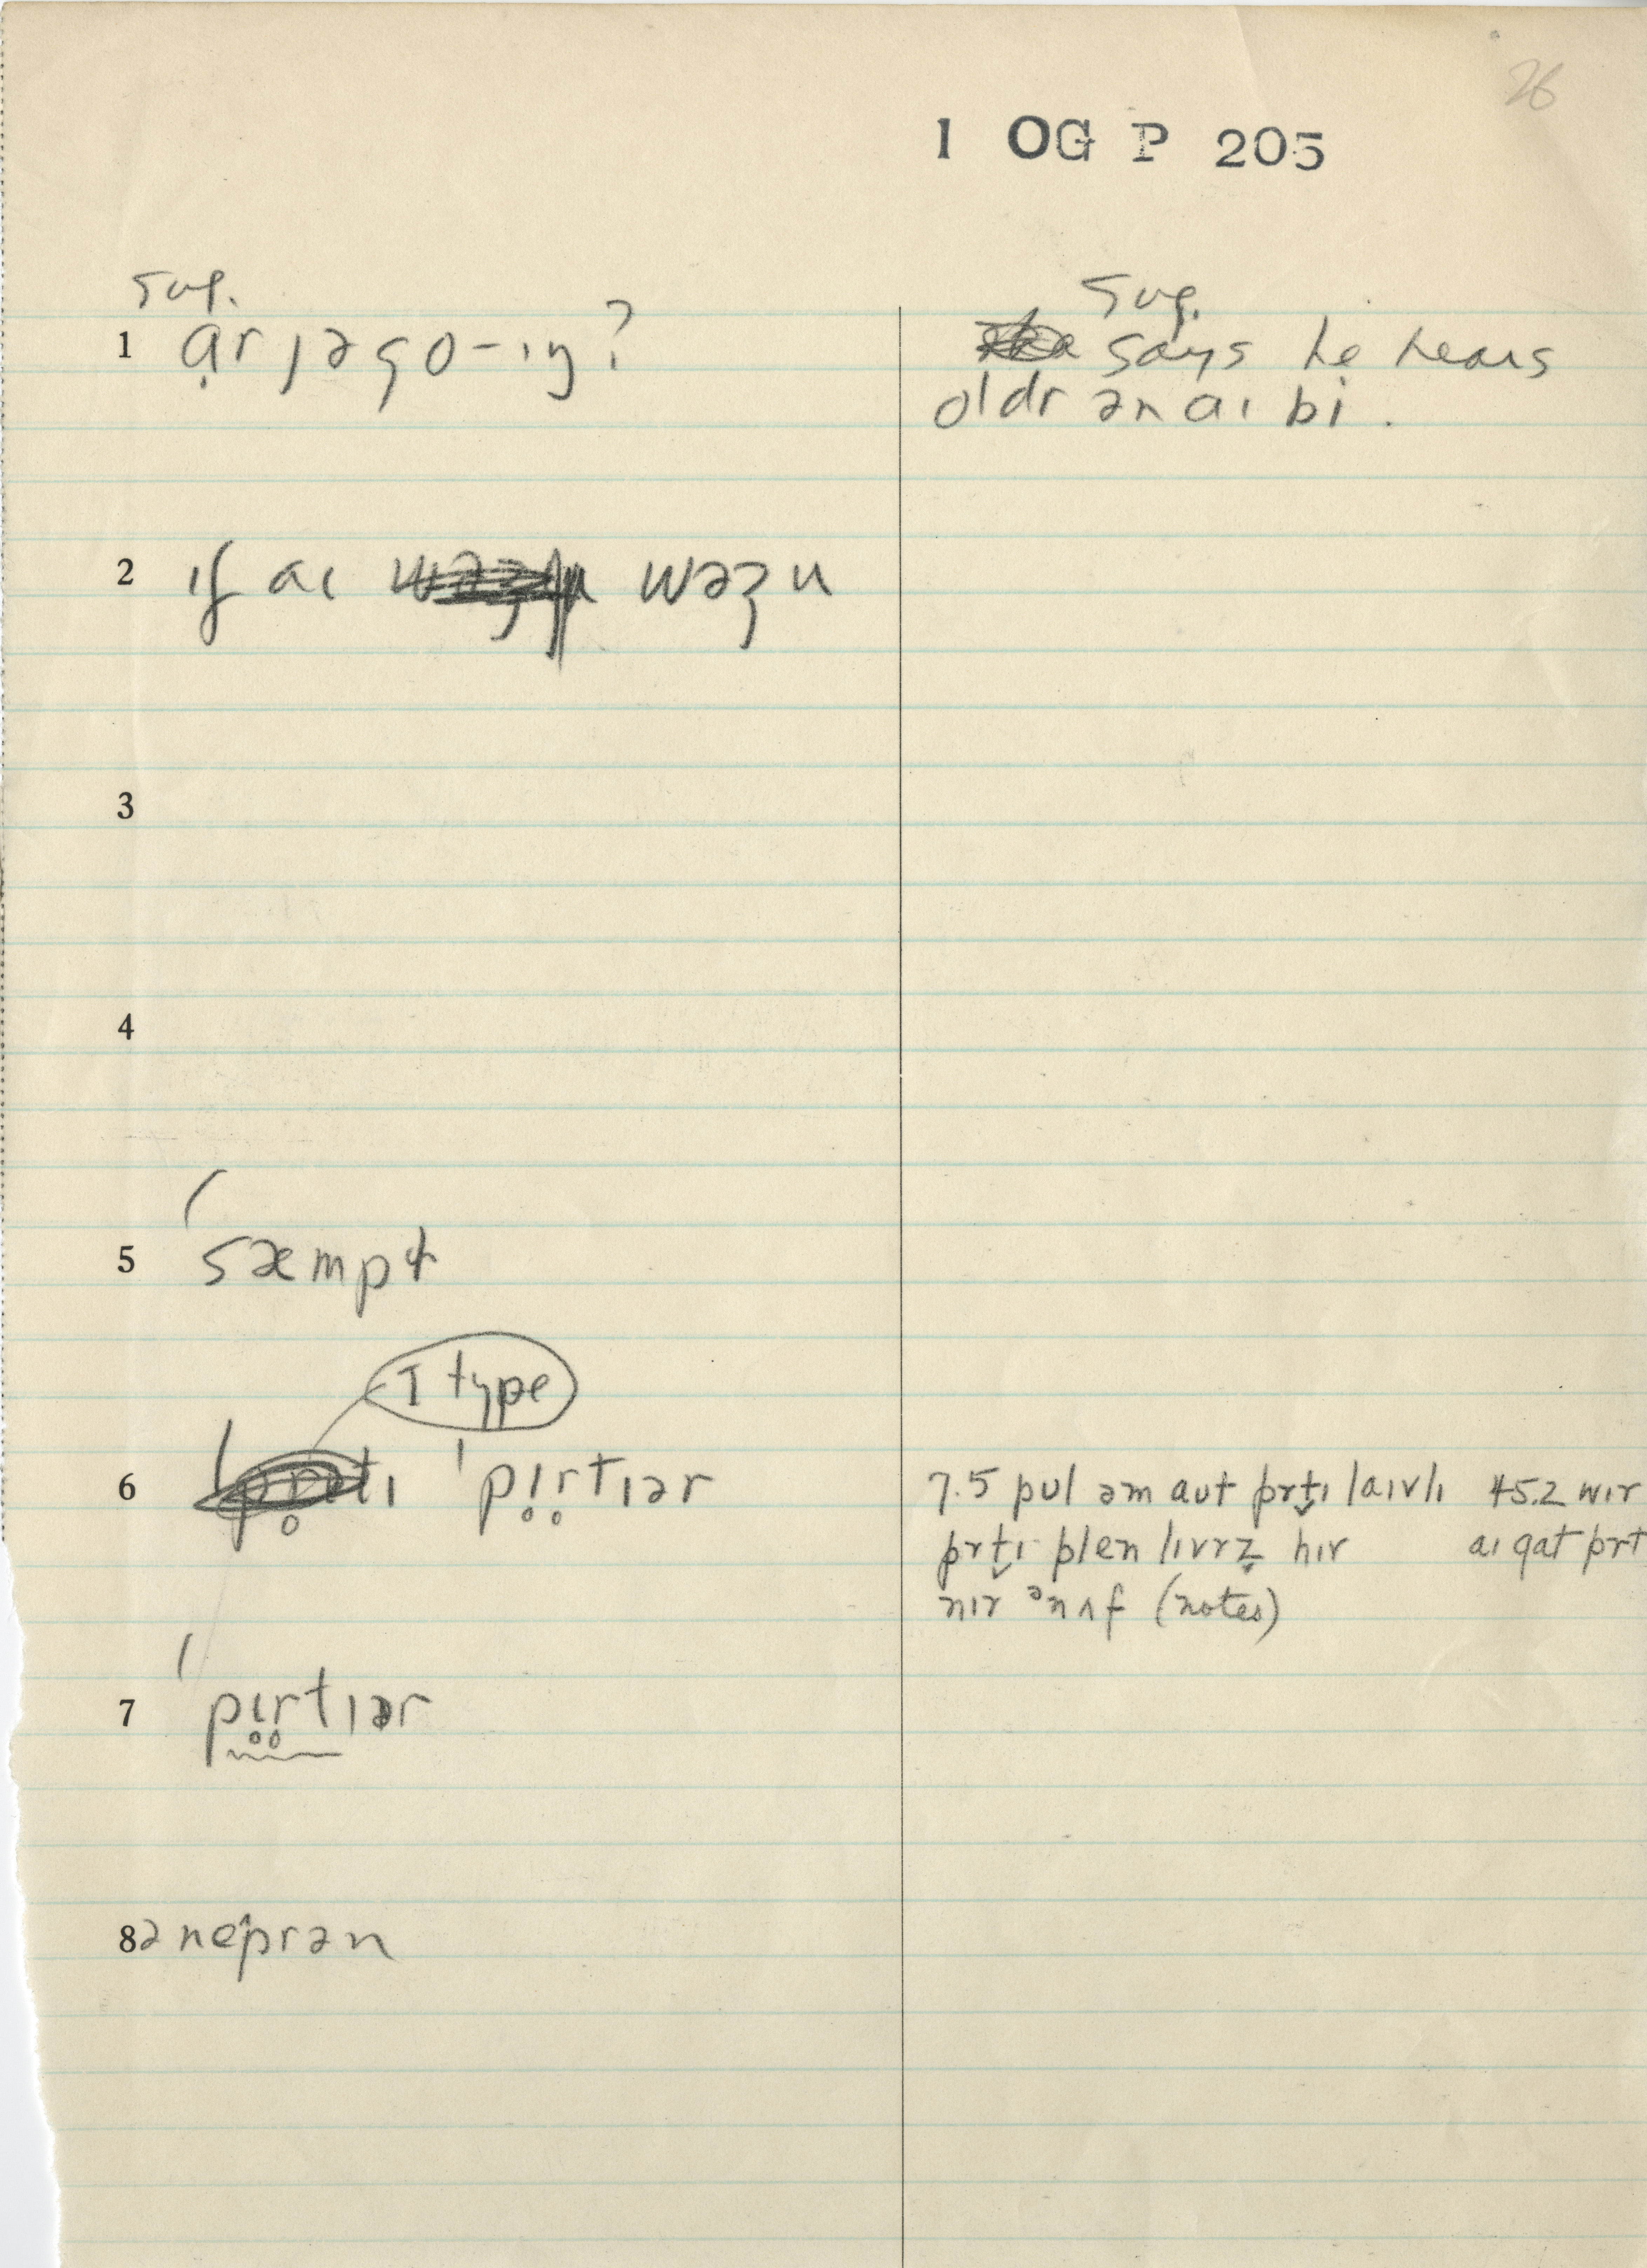 26
1 OG P 205
sug.
1 ạr jə go-ɪŋ?
sug.
says he hears
oldr ən aɪ bi.
2 ɪf aɪ wəz u
3
4
5 ˈsæmpɫ
I type
6 ˈpɪ̥r̥tɪər
7.5 pul əm aut prt̬ɪ laɪvlɪ 45.2 wɪr
prt̬ɪ plen lɪvrz̬ hɪr aɪ gat prt
nɪr ᵊnʌf (notes)
7 ˈpɪ̥r̥tɪər
8 ənéprən